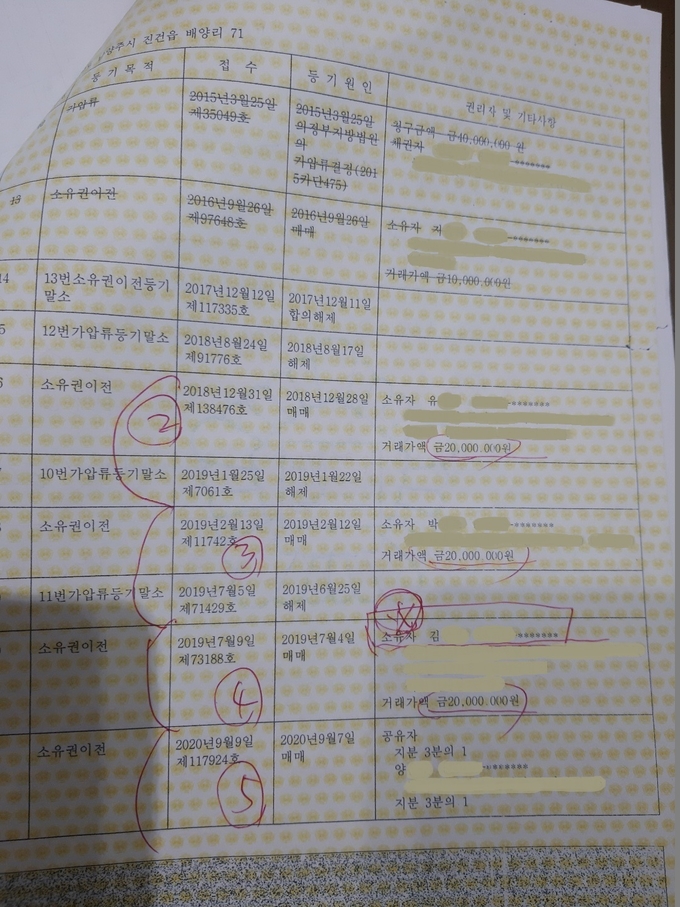 양주시 진건읍 배양리 71
등기목적 접수 등기원인 권리자 및 기타사항
가압류 2015년3월25일 제35049호 2015년3월25일 의정부지방법원의 가압류결정(2015카단475) 청구금액 금40,000,000 원
채권자 -*******
13 소유권이전 2016년9월26일 제97648호 2016년9월26일 매매 소유자 지 -*******
거래가액 금10,000,000원
14 13번소유권이전등기말소 2017년12월12일 제117335호 2017년12월11일 합의해제
5 12번가압류등기말소 2018년8월24일 제91776호 2018년8월17일 해제
6 소유권이전 2018년12월31일 제138476호 2018년12월28일 매매 소유자 유 -*******
거래가액 금20,000,000원
2
10번가압류등기말소 2019년1월25일 제7061호 2019년1월22일 해제
소유권이전 2019년2월13일 제11742호 2019년2월12일 매매 소유자 박 -*******
거래가액 금20,000,000원
3
11번가압류등기말소 2019년7월5일 제71429호 2019년6월25일 해제
소유권이전 2019년7월9일 제73188호 2019년7월4일 매매 소유자 김 *******
거래가액 금20,000,000원
4
소유권이전 2020년9월9일 제117924호 2020년9월7일 매매 공유자
지분 3분의 1
양 -*******
지분 3분의 1
5